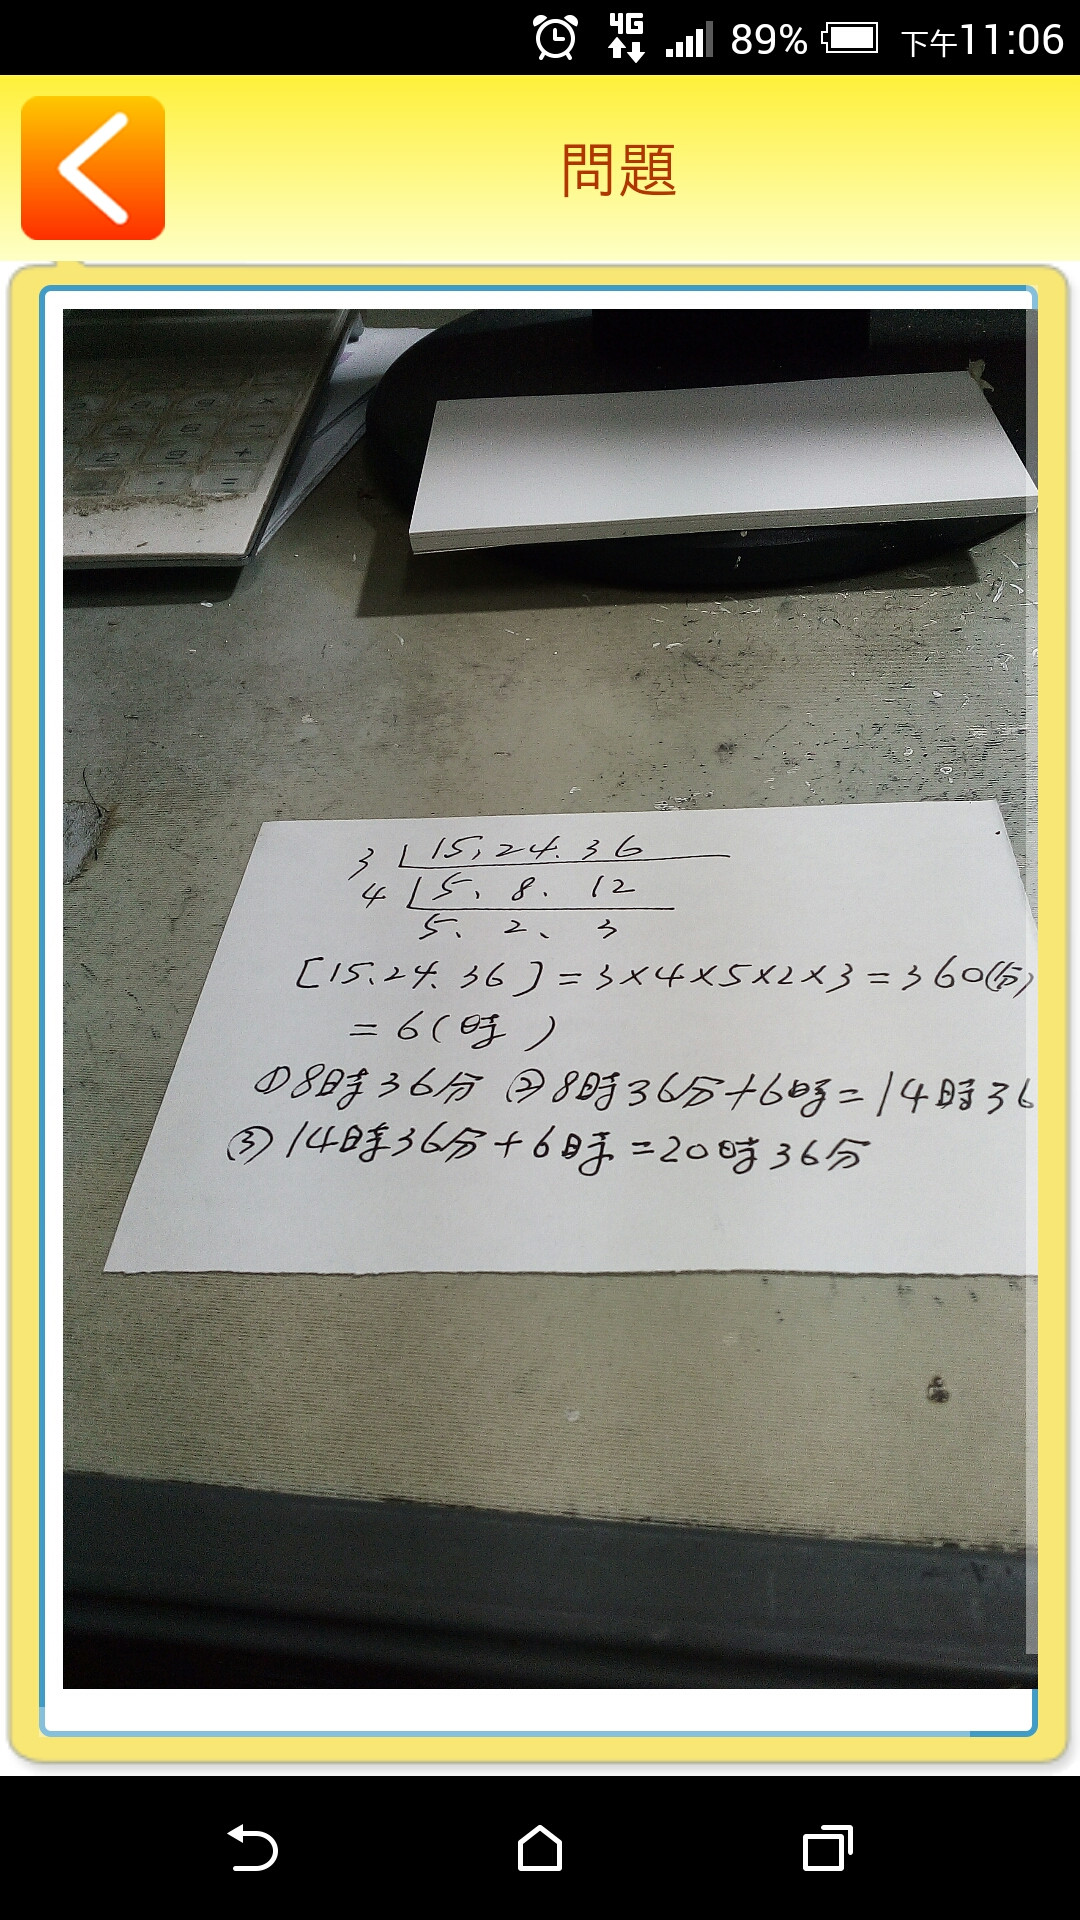 4G 89% 下午11:06
問題
3 15, 24. 36
4 5、8、12
5、2、3
[15、24、36] = 3×4×5×2×3 = 360(分)
= 6(時)
①8時36分 ②8時36分+6時=14時36
③14時36分+6時=20時36分